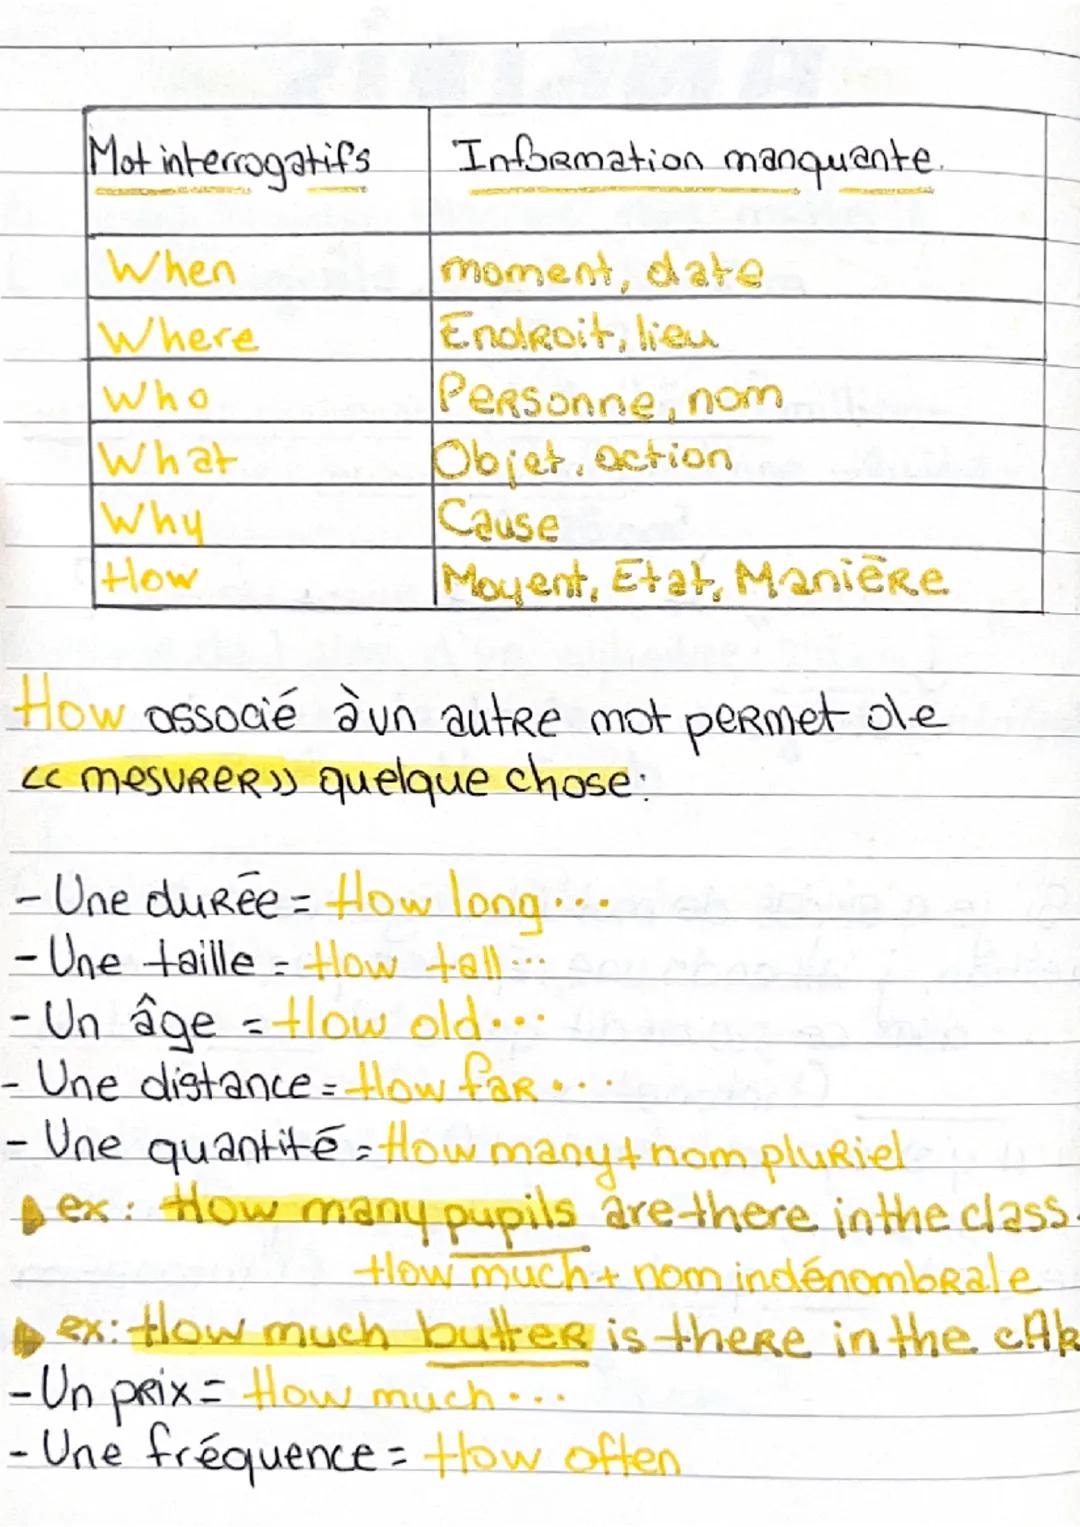 Mot interrogatifs Information manquante.
When moment, date
Where Endroit, lieu
Who Personne, nom
What Objet, action
Why Cause
How Moyent, Etat, Manière
How associé à un autre mot permet de
<< mesurer >> quelque chose:
- Une durée = How long...
- Une taille = How tall...
- Un âge = How old...
- Une distance = How far...
- Une quantité = How many + nom pluriel
ex: How many pupils are there in the class
How much + nom indénombrale
ex: How much butter is there in the cak
- Un prix = How much...
- Une fréquence = How often